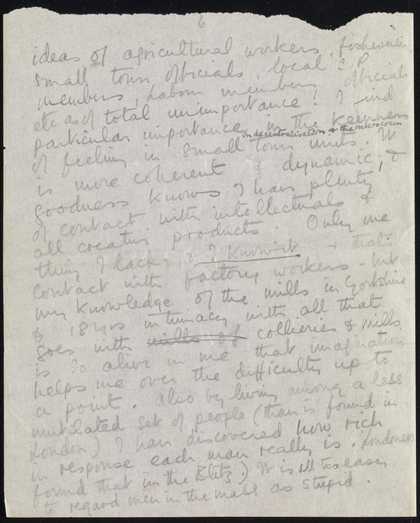 6
ideas of agricultural workers, fishermen
small town officials, local C.P.
members, Labour members, officials
etc as of total unimportance? I find
particular importance in the keenness
in decentralisation & the microcosm
of feeling in small town units. It
is more coherent & dynamic, &
goodness knows I have plenty
of contact with intellectuals &
all creative products. Only one
thing I lack, & I know it & that
contact with factory workers - but
my knowledge of the mills in Yorkshire
& 18 yrs intimacy with all that
goes with mills of collieries & mills
is so alive in me that imagination
helps me over the difficulty up to
a point. Also by living among a less
mutilated set of people (than is found in
London) I have discovered how rich
in response each man really is. (Londoners
found that in the Blitz) It is all too easy
to regard men in the mass as stupid.